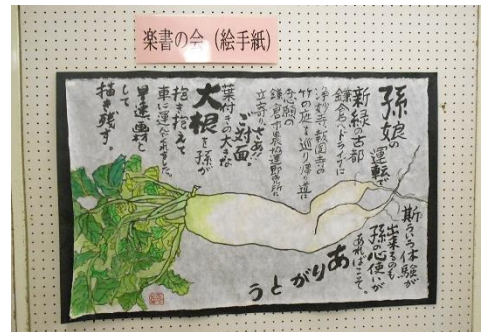 楽書の会(絵手紙)
孫娘の運転で
新緑の古都
鎌倉へドライブに
浄妙寺報国寺の
竹の庭も巡り帰り道に
念願の
鎌倉市農協連即売所に
立寄りさあ!!
ご対面。
葉付きの大きな
大根を孫が
抱き抱えて
車に運んでくれました。
早速画材と
して
描き残す。
斯ういう体験が
出来るのも
孫の心使いが
あればこそ。
ありがとう